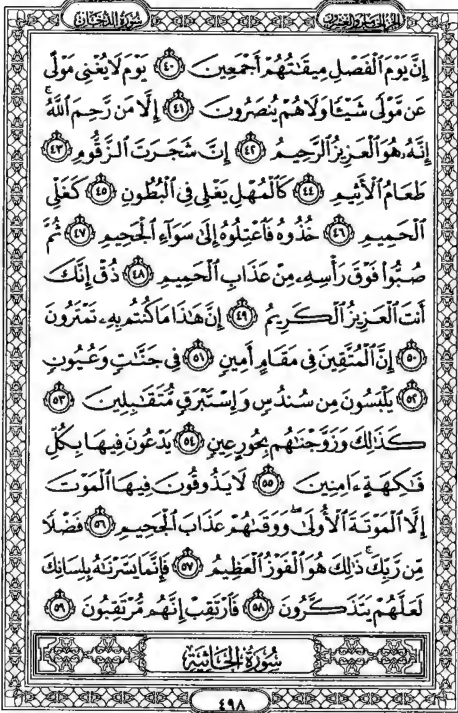 الجزء الخامس والعشرون سورة الدخان
إِنَّ يَوْمَ ٱلْفَصْلِ مِيقَٰتُهُمْ أَجْمَعِينَ ٤٠ يَوْمَ لَا يُغْنِى مَوْلًى
عَن مَّوْلًى شَيْـًٔا وَلَا هُمْ يُنصَرُونَ ٤١ إِلَّا مَن رَّحِمَ ٱللَّهُ ۚ
إِنَّهُۥ هُوَ ٱلْعَزِيزُ ٱلرَّحِيمُ ٤٢ إِنَّ شَجَرَتَ ٱلزَّقُّومِ ٤٣
طَعَامُ ٱلْأَثِيمِ ٤٤ كَٱلْمُهْلِ يَغْلِى فِى ٱلْبُطُونِ ٤٥ كَغَلْىِ
ٱلْحَمِيمِ ٤٦ خُذُوهُ فَٱعْتِلُوهُ إِلَىٰ سَوَآءِ ٱلْجَحِيمِ ٤٧ ثُمَّ
صُبُّوا۟ فَوْقَ رَأْسِهِۦ مِنْ عَذَابِ ٱلْحَمِيمِ ٤٨ ذُقْ إِنَّكَ
أَنتَ ٱلْعَزِيزُ ٱلْكَرِيمُ ٤٩ إِنَّ هَٰذَا مَا كُنتُم بِهِۦ تَمْتَرُونَ
٥٠ إِنَّ ٱلْمُتَّقِينَ فِى مَقَامٍ أَمِينٍ ٥١ فِى جَنَّٰتٍ وَعُيُونٍ
٥٢ يَلْبَسُونَ مِن سُندُسٍ وَإِسْتَبْرَقٍ مُّتَقَٰبِلِينَ ٥٣
كَذَٰلِكَ وَزَوَّجْنَٰهُم بِحُورٍ عِينٍ ٥٤ يَدْعُونَ فِيهَا بِكُلِّ
فَٰكِهَةٍ ءَامِنِينَ ٥٥ لَا يَذُوقُونَ فِيهَا ٱلْمَوْتَ
إِلَّا ٱلْمَوْتَةَ ٱلْأُولَىٰ ۖ وَوَقَىٰهُمْ عَذَابَ ٱلْجَحِيمِ ٥٦ فَضْلًا
مِّن رَّبِّكَ ۚ ذَٰلِكَ هُوَ ٱلْفَوْزُ ٱلْعَظِيمُ ٥٧ فَإِنَّمَا يَسَّرْنَٰهُ بِلِسَانِكَ
لَعَلَّهُمْ يَتَذَكَّرُونَ ٥٨ فَٱرْتَقِبْ إِنَّهُم مُّرْتَقِبُونَ ٥٩
سُورَةُ الجَاثِيَة
٤٩٨